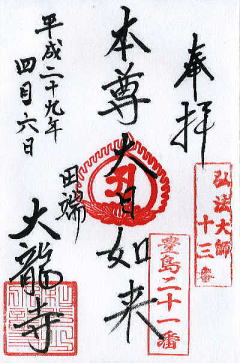 奉拝
弘法大師
十三番
本尊大日如来
豊島二十一番
田端
大龍寺
平成二十九年
四月六日